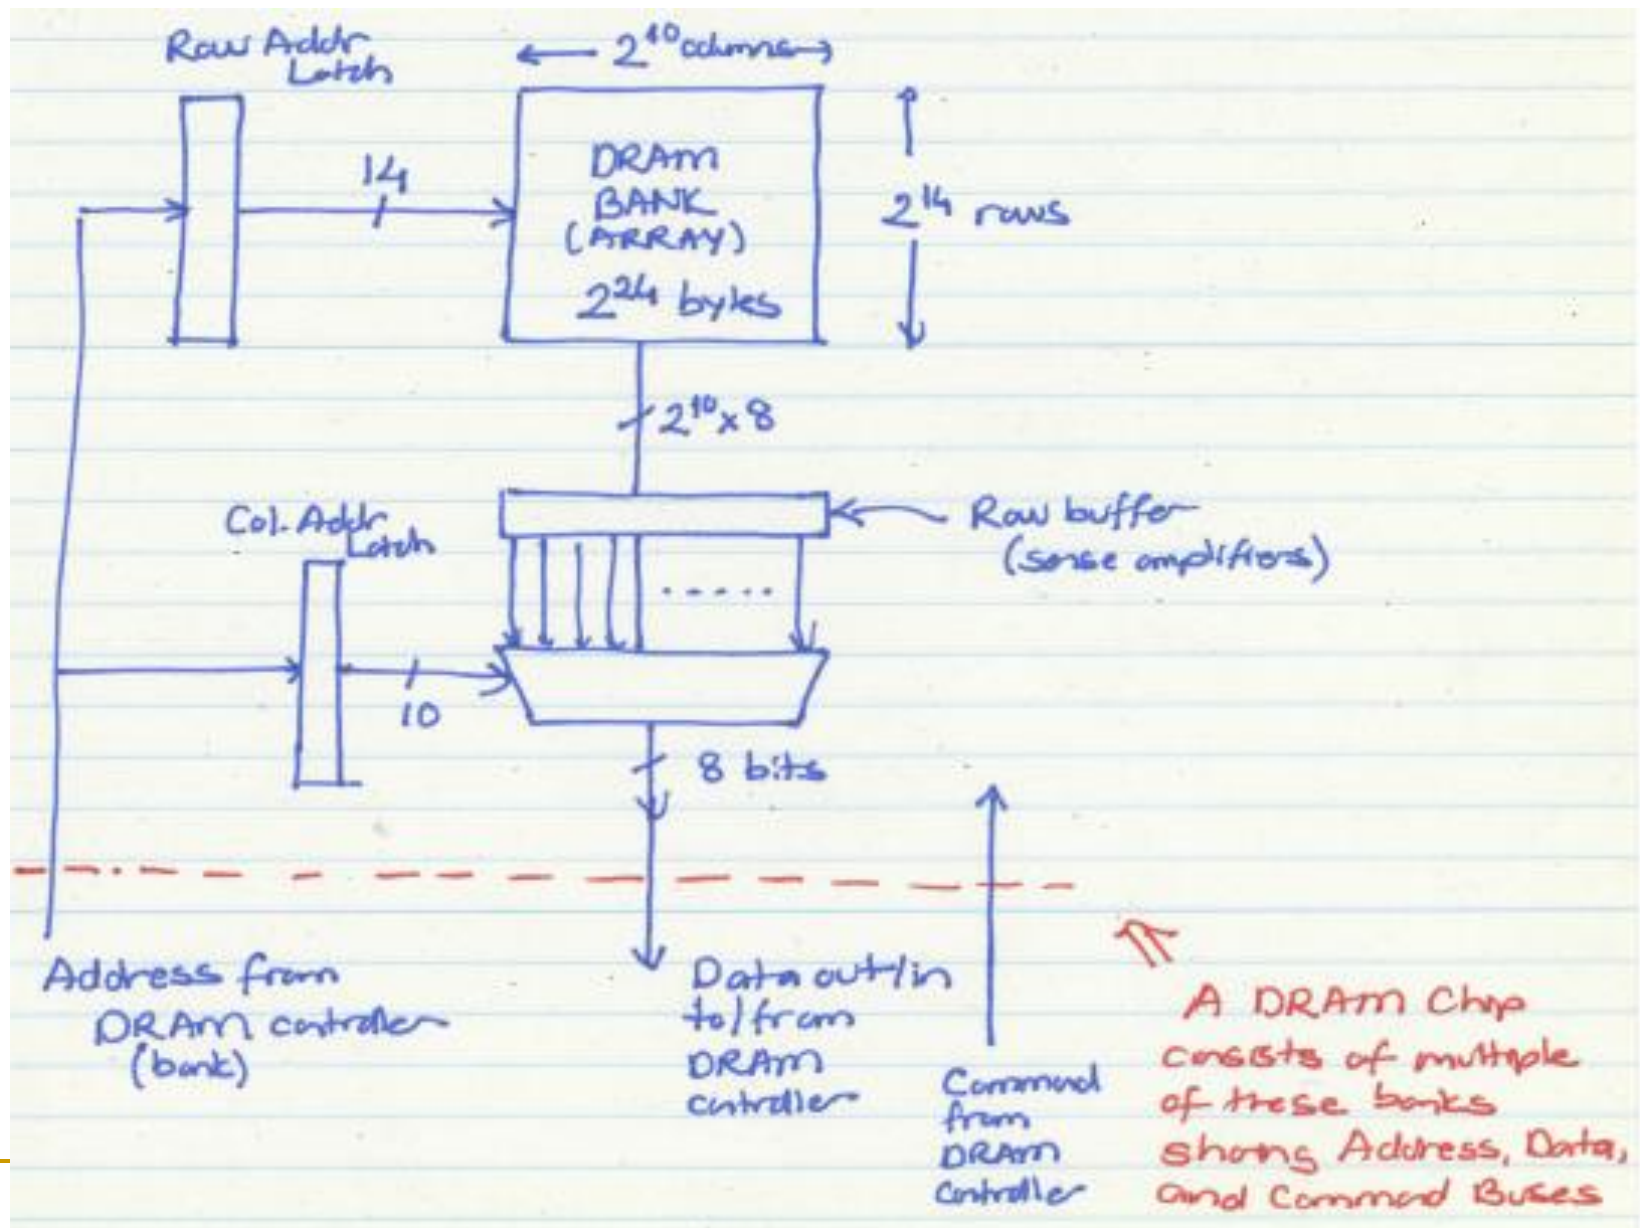 Row Addr
Latch
← 2^10 columns →
14
DRAM
BANK
(ARRAY)
2^24 bytes
2^14 rows
2^10 x 8
Col. Addr
Latch
10
Row buffer
(sense amplifiers)
8 bits
Address from
DRAM controller
(bank)
Data out/in
to/from
DRAM
controller
Command
from
DRAM
controller
A DRAM Chip
consists of multiple
of these banks
sharing Address, Data,
and Command Buses